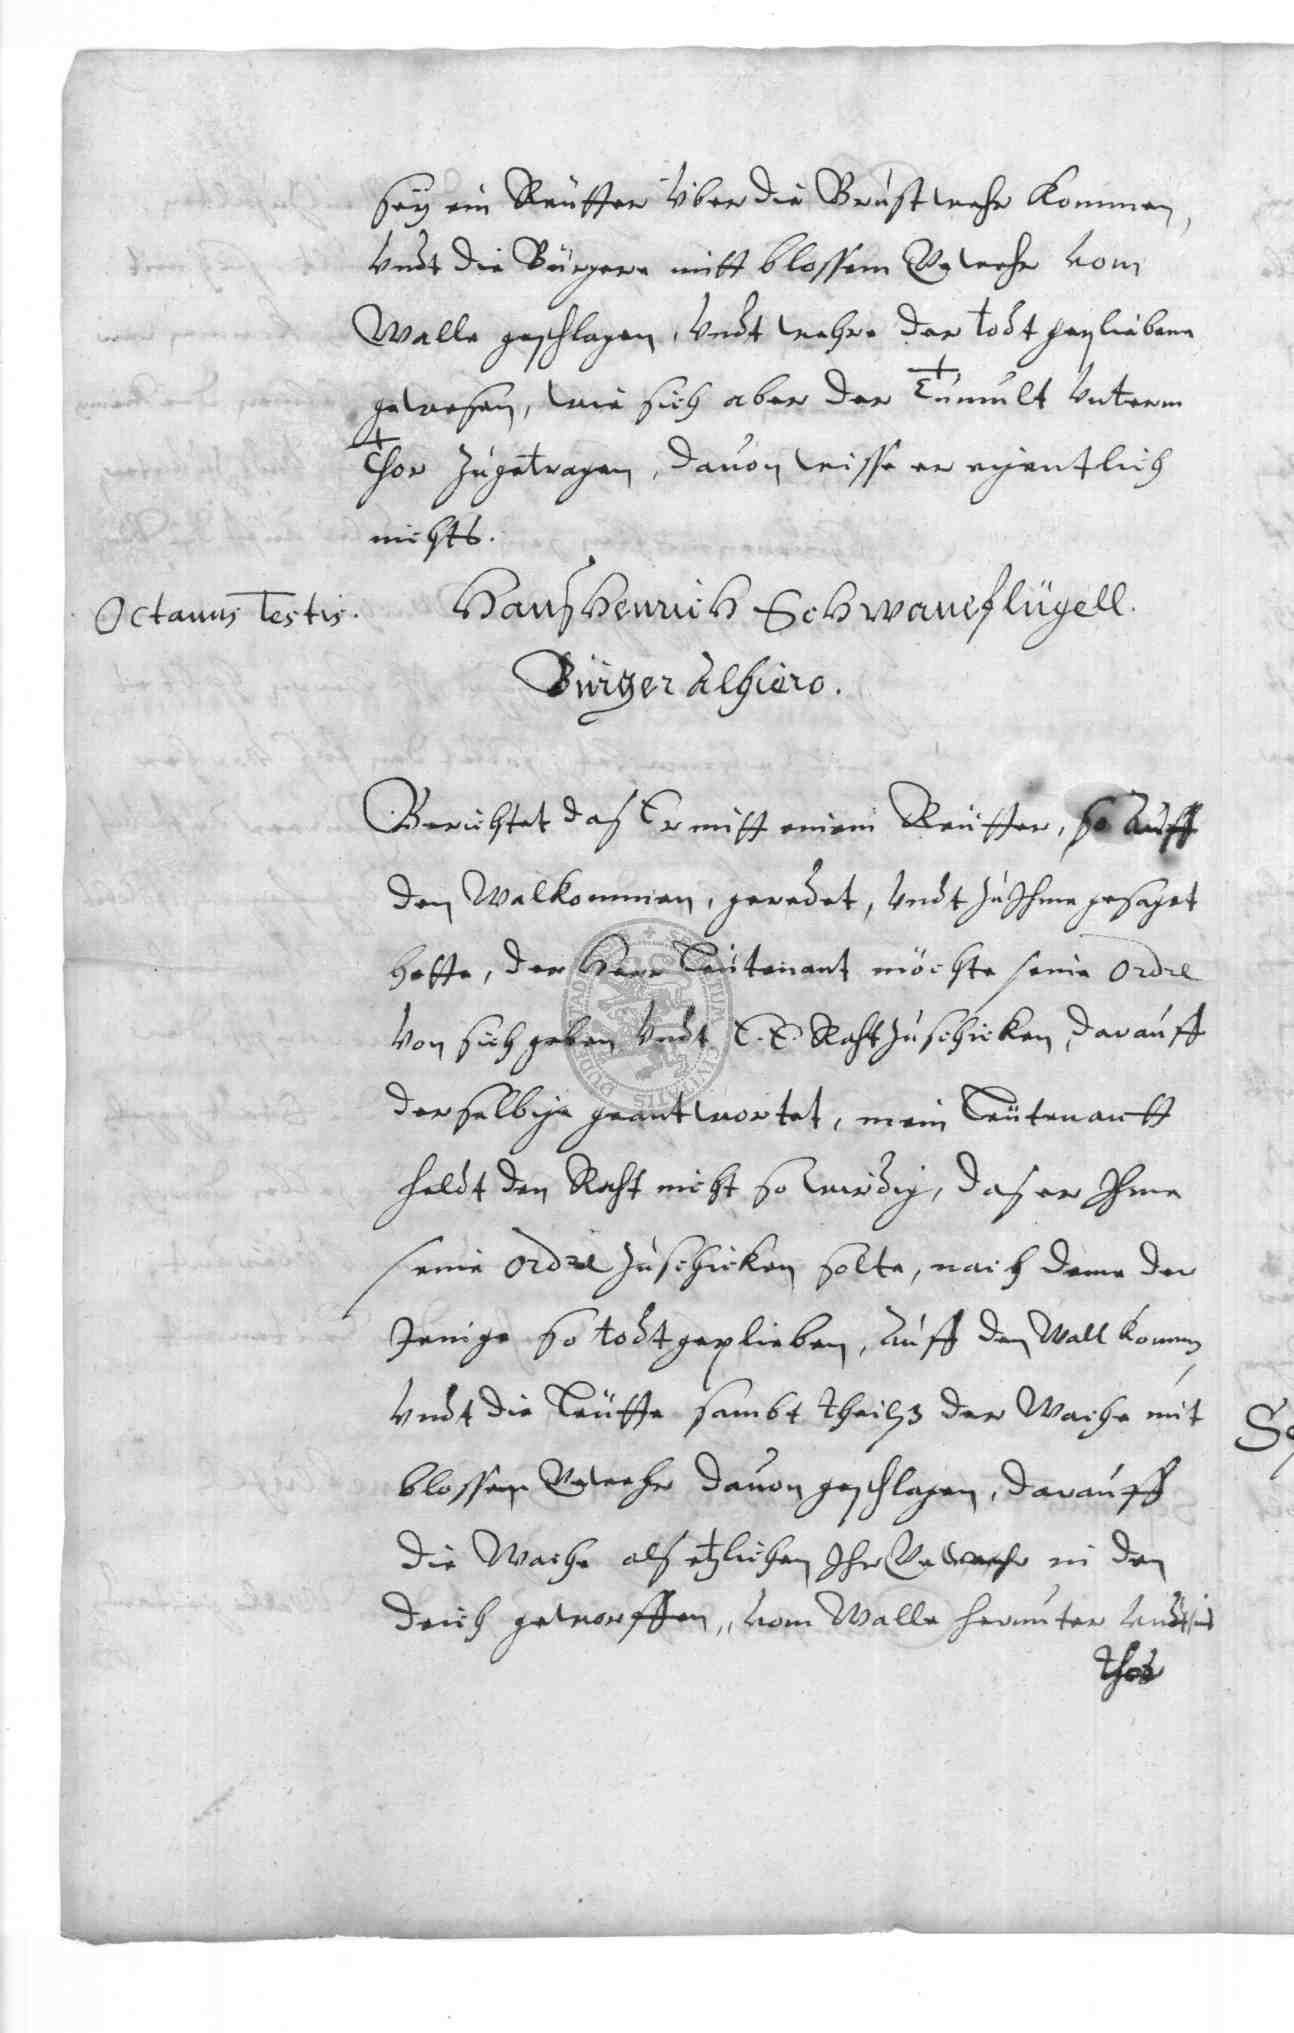 seÿ ein Reutter über die Brustwehr kommen,
Vndt die Bürgere mitt blossem Gewehr vom
Walle geschlagen, Vndt wehre der todt gepliebene
gewesen, wie sich aber der Tumult Vnterm
Thor zugetragen, dauon wisse er eigentlich
nichts.
Octauus Testis. Hanß Henrich Schwaneflügell.
Bürger Alhiero.
Berichtet daß Er mitt einem Reutter, so auff
den Wal kommen, geredet, Vndt zu Ihme gesaget
hette, der Herr Leutenant möchte seine Ordre
Von sich geben Vndt E. E. Raht zuschicken, darauff
derselbige geantwortet, mein Leutenantt
heldt den Raht nicht so wirdig, daß er Ihme
seine Ordre zuschicken solte, nach deme der
Jenige so todt geplieben, auff den Wall kommen
Vndt die Leutte sambt theilß der Wache mit
blossem Gewehr dauon geschlagen, darauff
die Wache alß etzlichen Ihr Gewehr in den
Deich geworffen, vom Walle herunter Vndt ins
Thor